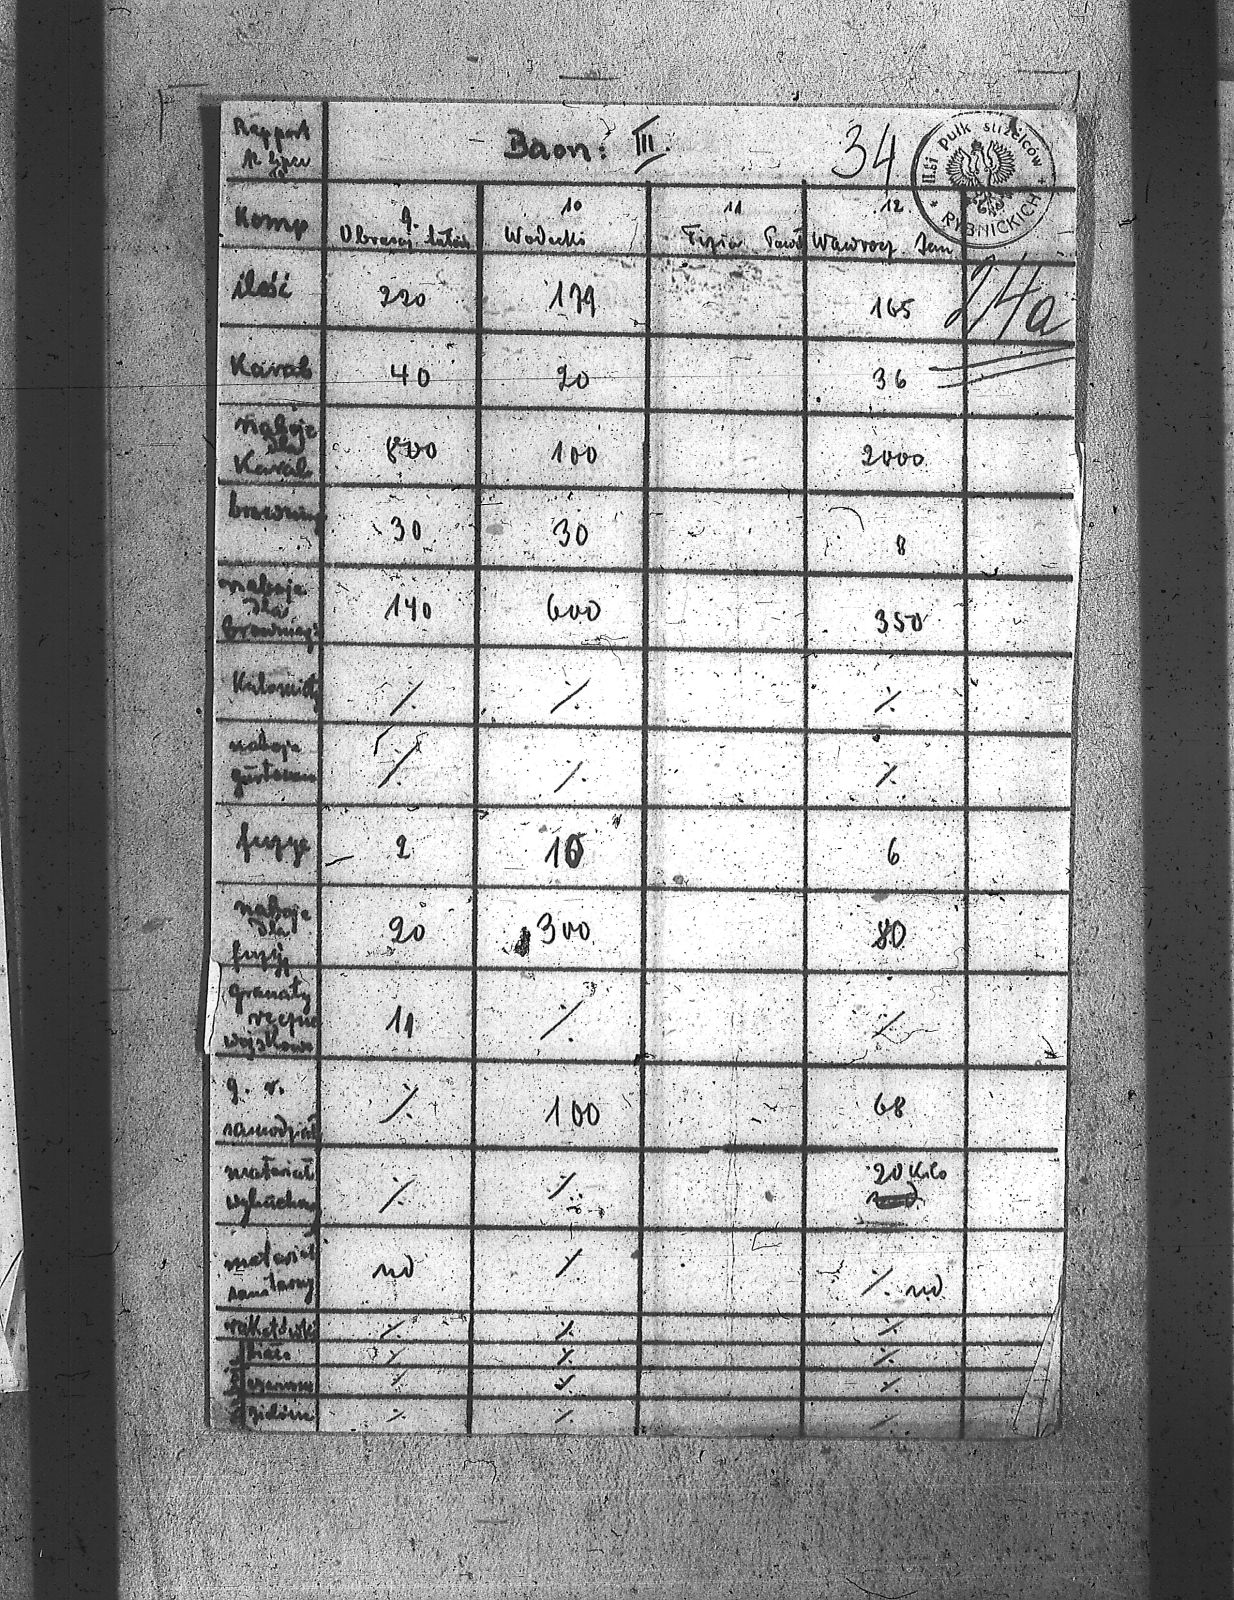 Rapport
Baon: III.
34
II. gi pułk strzelców
RYBNICKICH
Komp 9. 10 11 12.
Wodecki Paweł Wawrocz Jan
ilość 220 179 165 214a
Karab 40 20 36
naboje
dla
Karab 800 100 2000
browningi 30 30 8
naboje
dla
browningi 140 600 350
⁒ ⁒ ⁒
naboje
⁒ ⁒ ⁒
fuzye 2 10 6
naboje
dla
fuzyj 20 300 80
granaty
ręczne
wojskowe 11 ⁒ ⁒
g. r.
samodział ⁒ 100 68
materiał
wybuchowy ⁒ ⁒ 20 Kilo
materiał
sanitarny ⁒ ⁒
⁒ ⁒ ⁒
białe ⁒ ⁒ ⁒
czerwone ⁒ ⁒ ⁒
zielone ⁒ ⁒ ⁒